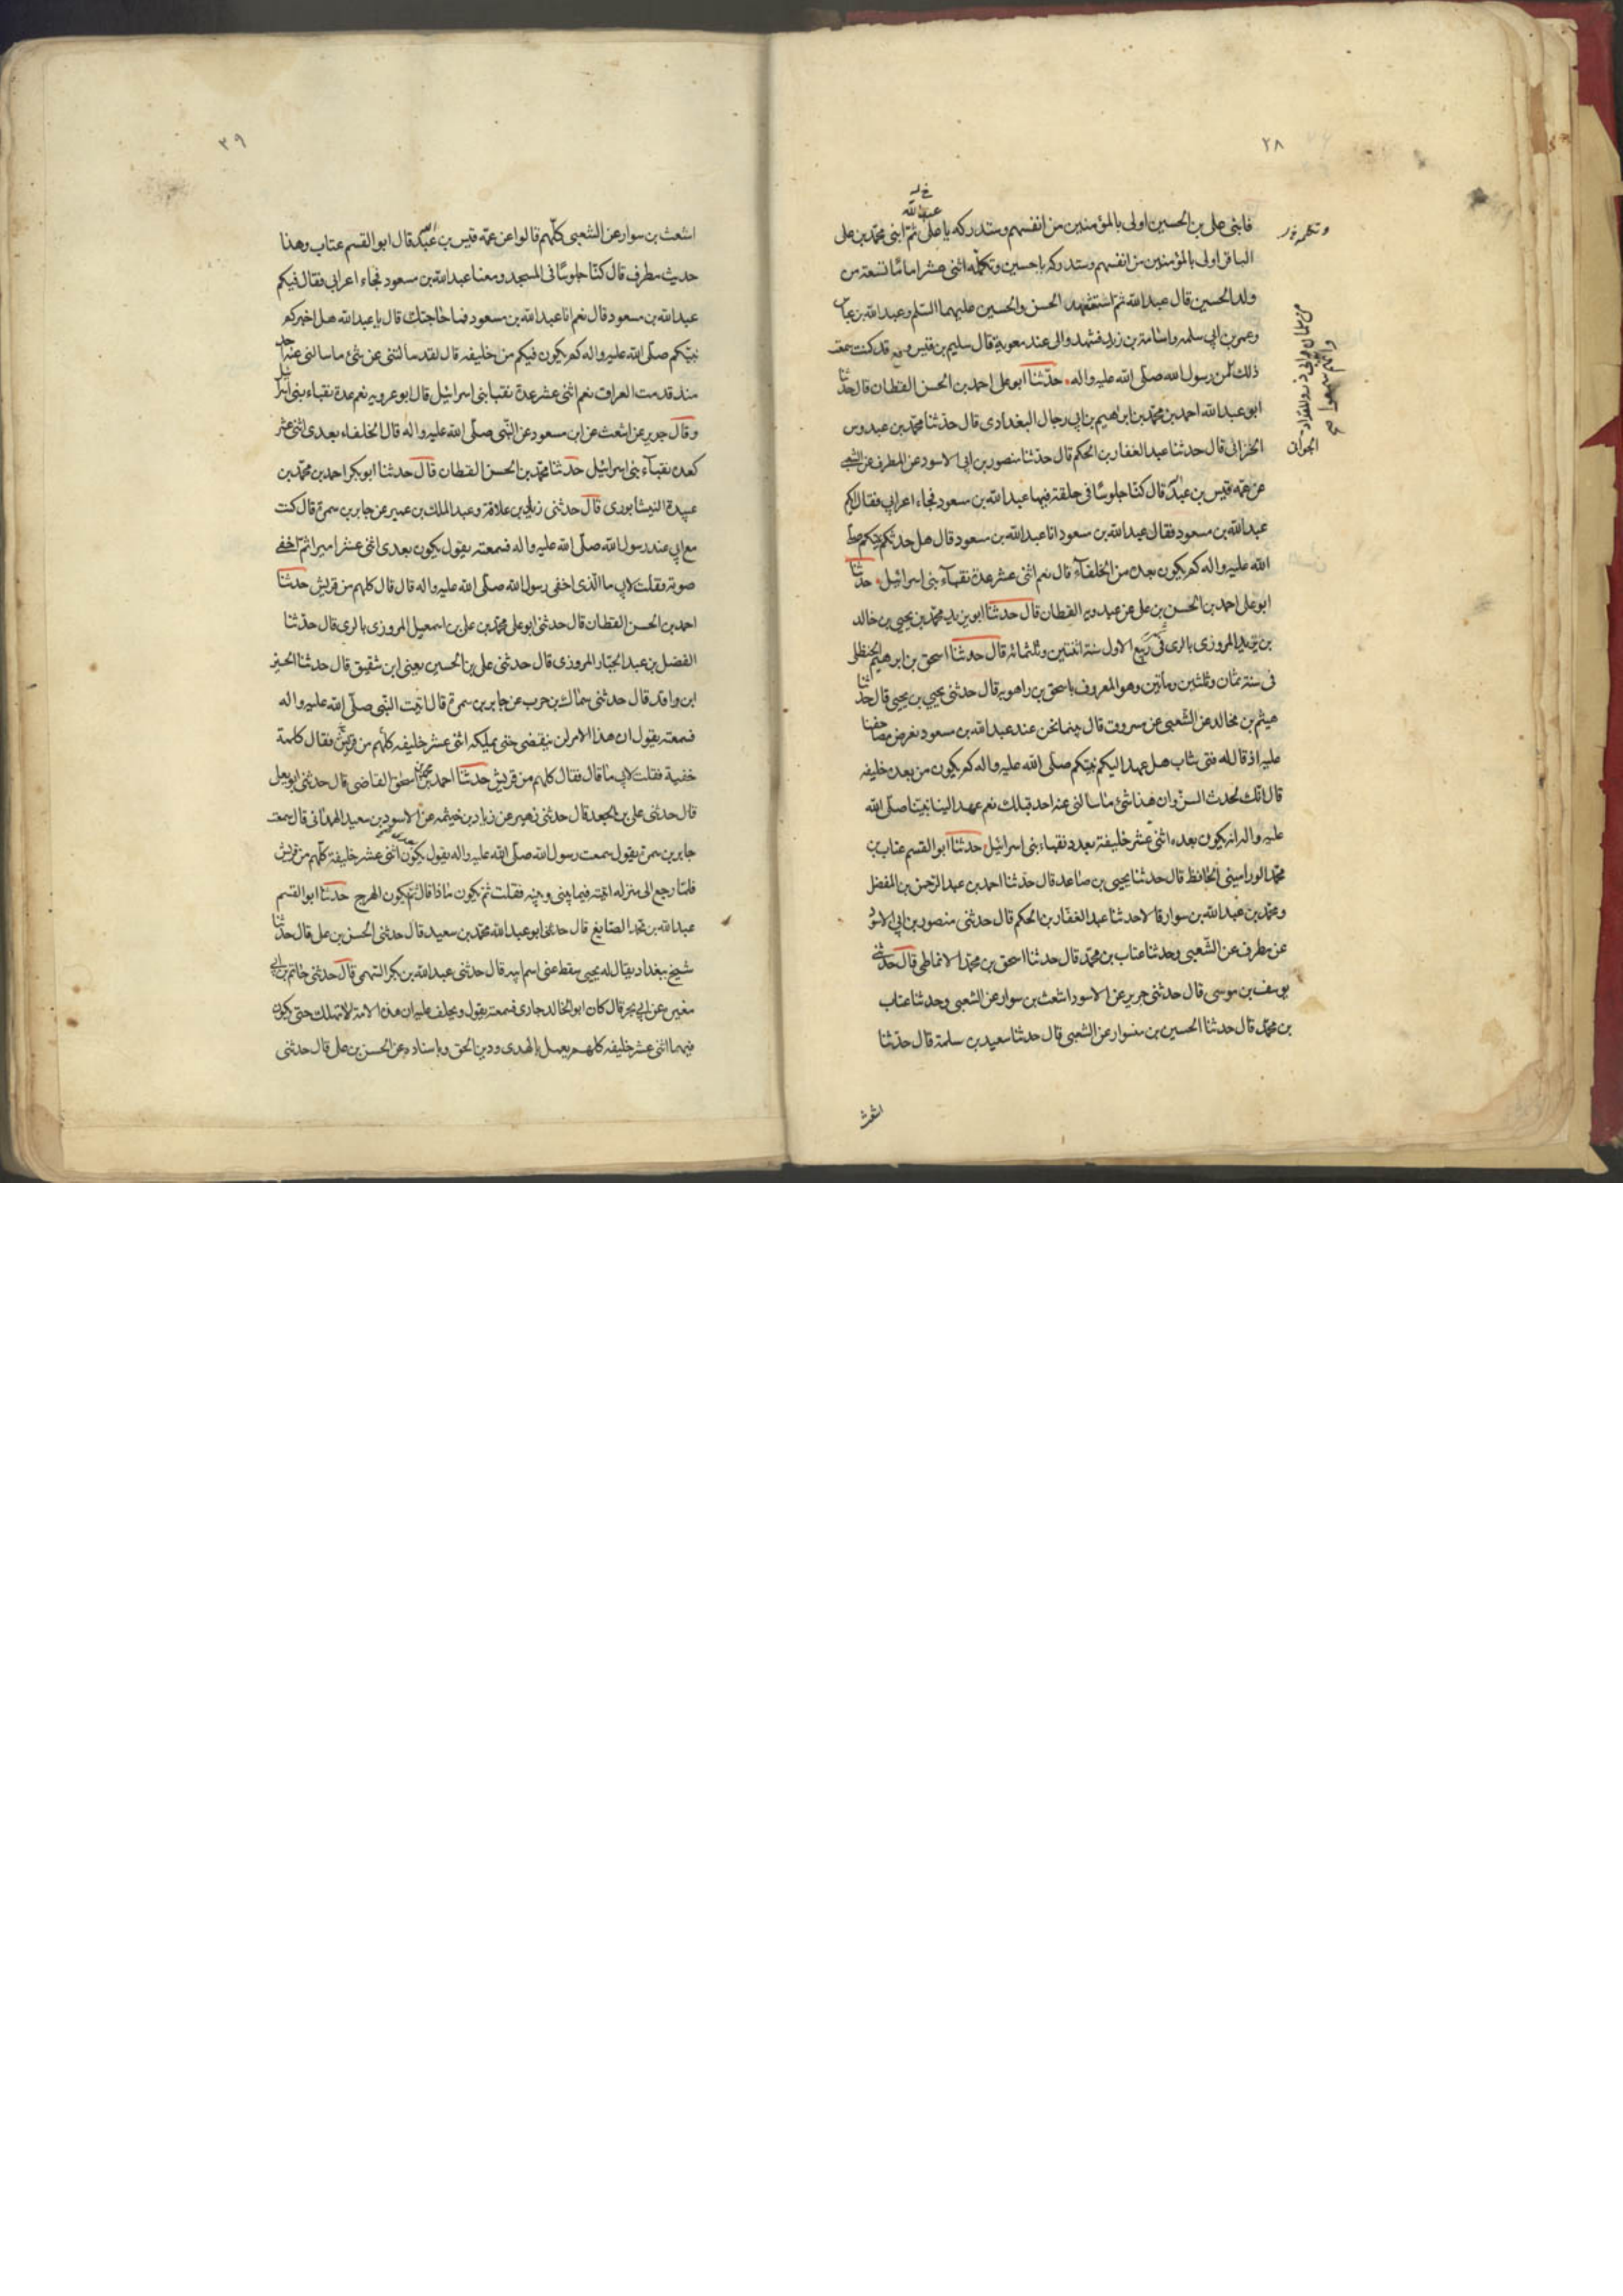 ٢٨
فابنى على بن الحسين اولى بالمؤمنين من انفسهم وستدركه يا على ثم ابنى محمد بن على
عبد الله
الباقر اولى بالمؤمنين من انفسهم وستدركه يا حسين وتكمله اثنى عشر اماما تسعة من
ولد الحسين قال عبد الله ثم استشهدت الحسن والحسين عليهما السلم وعبد الله بن عباس
وعمر بن ابى سلمه واسامة بن زيد فشهدوا لى عند معوية قال سليم بن قيس وقد كنت سمعت
ذلك من رسول الله صلى الله عليه واله حدثنا ابو على احمد بن الحسن القطان قال حدثنا
ابو عبد الله احمد بن محمد بن ابراهيم بن ابى رجال البغدادى قال حدثنا محمد بن عبدوس
الحرانى قال حدثنا عبد الغفار بن الحكم قال حدثنا منصور بن ابى الاسود عن المطرف عن الشعبى
عن عمه قيس بن عبد قال كنا جلوسا فى حلقة فيها عبد الله بن مسعود فجاء اعرابى فقال ايكم
عبد الله بن مسعود فقال عبد الله بن مسعود انا عبد الله بن مسعود قال هل حدثكم نبيكم صلى
الله عليه واله كم يكون بعده من الخلفآء قال نعم اثنى عشر عدة نقبآء بنى اسرائيل حدثنا
ابو على احمد بن الحسن بن على بن عبدويه القطان قال حدثنا ابو يزيد محمد بن يحيى بن خالد
بن يزيد المروزى بالرى فى ربيع الاول سنة اثنتين وثلثمائة قال حدثنا اسحق بن ابرهيم الحنظلى
فى سنة ثمان وثلثين ومأتين وهو المعروف باسحق بن راهويه قال حدثنى يحيى بن يحيى قال حدثنا
هيثم بن مخالد عن الشعبى عن مسروق قال بينما نحن عند عبد الله بن مسعود نعرض مصاحفنا
عليه اذ قال له فتى شاب هل عهد اليكم نبيكم صلى الله عليه واله كم يكون من بعده خليفه
قال انك لحدث السن وان هذا شئ ما سالنى عنه احد قبلك نعم عهد الينا نبينا صلى الله
عليه واله انه يكون بعده اثنى عشر خليفة بعدد نقباء بنى اسرائيل حدثنا ابو القسم عتاب بن
محمد الوراميني الحافظ قال حدثنا يحيى بن صاعد قال حدثنا احمد بن عبد الرحمن بن المفضل
ومحمد بن عبد الله بن سوار قالا حدثنا عبد الغفار بن الحكم قال حدثنى منصور بن ابى الاسود
عن مطرف عن الشعبى وحدثنا عتاب بن محمد قال حدثنا اسحق بن محمد الانماطى قال حدثنى
يوسف بن موسى قال حدثنى جرير عن الاسود اشعث بن سوار عن الشعبى وحدثنا عتاب
بن محمد قال حدثنا الحسين بن منسوار عن الشعبى قال حدثنا سعيد بن سلمة قال حدثنا
اشعث
٣٩
اشعث بن سوار عن الشعبى كلهم قالوا عن عمه قيس بن عبد قال ابو القسم عتاب وهذا
حديث مطرف قال كنا جلوسا فى المسجد ومعنا عبد الله بن مسعود فجاء اعرابى فقال فيكم
عبد الله بن مسعود قال نعم انا عبد الله بن مسعود فما حاجتك قال يا عبد الله هل اخبركم
نبيكم صلى الله عليه واله كم يكون فيكم من خليفه قال لقد سالتنى عن شئ ما سالنى عنه احد
منذ قدمت العراق نعم اثنى عشر عدة نقبا بنى اسرائيل قال ابو عروبه نعم عدة نقباء بنى اسرائيل
وقال جرير عن اشعث عن ابن مسعود عن النبى صلى الله عليه واله قال الخلفاء بعدى اثنى عشر
كعدد نقبآء بنى اسرائيل حدثنا محمد بن الحسن القطان قال حدثنا ابو بكر احمد بن محمد بن
عبيدة النيشابورى قال حدثنى زياد بن علاقة وعبد الملك بن عمير عن جابر بن سمرة قال كنت
مع ابى عند رسول الله صلى الله عليه واله فسمعته يقول يكون بعدى اثنى عشر اميرا ثم اخفى
صوته وقلت لابى ما الذى اخفى رسول الله صلى الله عليه واله قال قال كلهم من قريش حدثنا
احمد بن الحسن القطان قال حدثنى ابو على محمد بن على بن اسمعيل المروزى بالرى قال حدثنا
الفضل بن عبد الجبار المروزى قال حدثنى على بن الحسين يعنى ابن شقيق قال حدثنا الحسين
ابن واقد قال حدثنى سماك بن حرب عن جابر بن سمرة قال اتيت النبى صلى الله عليه واله
فسمعته يقول ان هذا الامر لن ينقضى حتى يملكه اثنى عشر خليفه كلهم من قريش فقال كلمة
خفية فقلت لابى ما قال فقال كلهم من قريش حدثنا احمد بن محمد بن اسحق القاضى قال حدثنى ابو يعلى
قال حدثنى على بن الجعد قال حدثنى زهير عن زياد بن خيثمه عن الاسود بن سعيد الهمدانى قال سمعت
جابر بن سمرة يقول سمعت رسول الله صلى الله عليه واله يقول يكون اثنى عشر خليفة كلهم من قريش
فلما رجع الى منزله اتيته فيما بينى وبينه فقلت ثم يكون ماذا قال ثم يكون الهرج حدثنا ابو القسم
عبد الله بن محمد الصايغ قال حدثنى ابو عبد الله محمد بن سعيد قال حدثنى الحسن بن على قال حدثنا
شيخ ببغداد يقال له يحيى سقط عنى اسم ابيه قال حدثنى عبد الله بن بكر السهمى قال حدثنى حاتم بن ابى
مغيره عن ابى بحر قال كان ابو الخالد جارى فسمعته يقول ويحلف عليه ان هذه الامة لا تهلك حتى يكون
فيها اثنى عشر خليفه كلهم يعمل بالهدى ودين الحق وباسناده عن الحسن بن على قال حدثنى